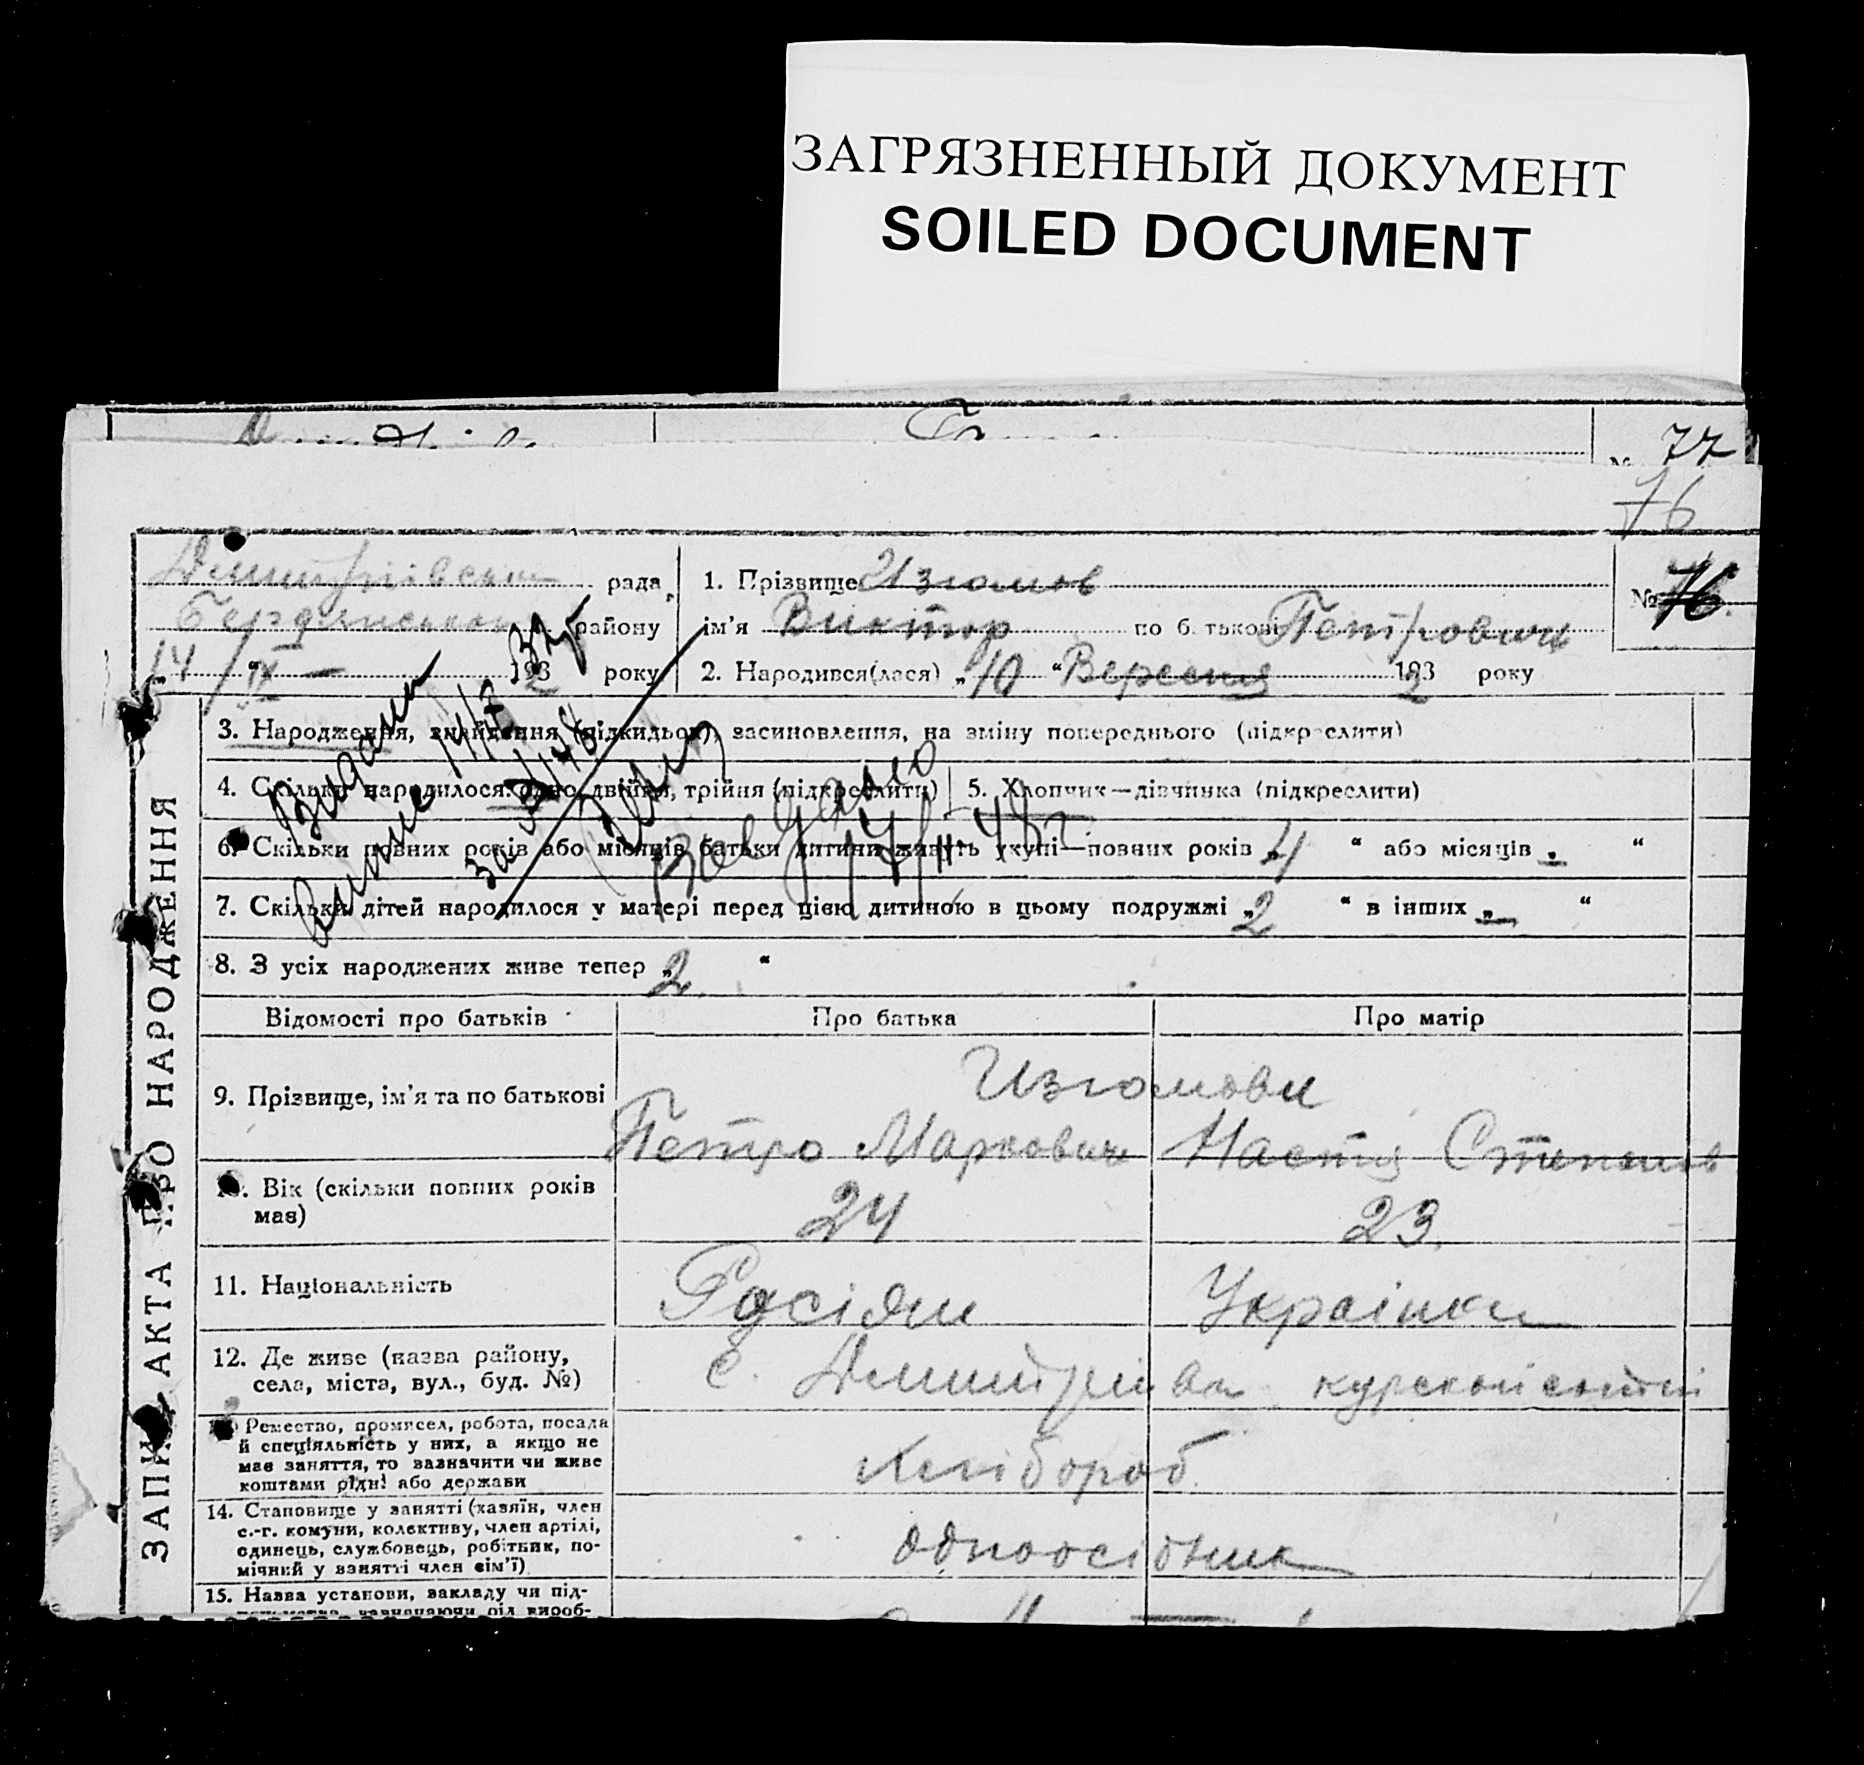 ЗАГРЯЗНЕННЫЙ ДОКУМЕНТ
SOILED DOCUMENT
77
76
рада 1. Прізвище Изюмов № 76
району ім'я Виктор по б. тькові Петрович
14 / IX — 1932 року 2. Народився(лася) „10 “ Вересня 1932 року
ЗАПИС АКТА ПРО НАРОДЖЕННЯ
3. Народження, знайдення (підкидьок), засиновлення, на зміну попереднього (підкреслити)
4. Скільки народилося: одно, двійня, трійня (підкреслити) 5. Хлопчик—дівчинка (підкреслити)
6. Скільки повних років або місяців батьки дитини живуть укупі—повних років „4 “ або місяців „—“
7. Скільки дітей народилося у матері перед цією дитиною в цьому подружжі „2 “ в інших „—“
8. З усіх народжених живе тепер „2 “
17/II 48 г.
Відомості про батьків Про батька Про матір
Изюмови
9. Прізвище, ім'я та по батькові Петро Маркович Настя Степанов
10. Вік (скільки повних років має) 24 23.
11. Національність Росіян Українка
12. Де живе (назва району, с. Дмитрівка
села, міста, вул., буд. №)
13. Ремество, промисел, робота, посада
й спеціяльність у них, а якщо не Хлібороб
має заняття, то зазначити чи живе
коштами рідні або держави
14. Становище у занятті (хазяїн, член
с.-г. комуни, колективу, член артілі, одноосібник
одинець, службовець, робітник, по-
мічний у занятті член сім'ї)
15. Назва установи, закладу чи під-